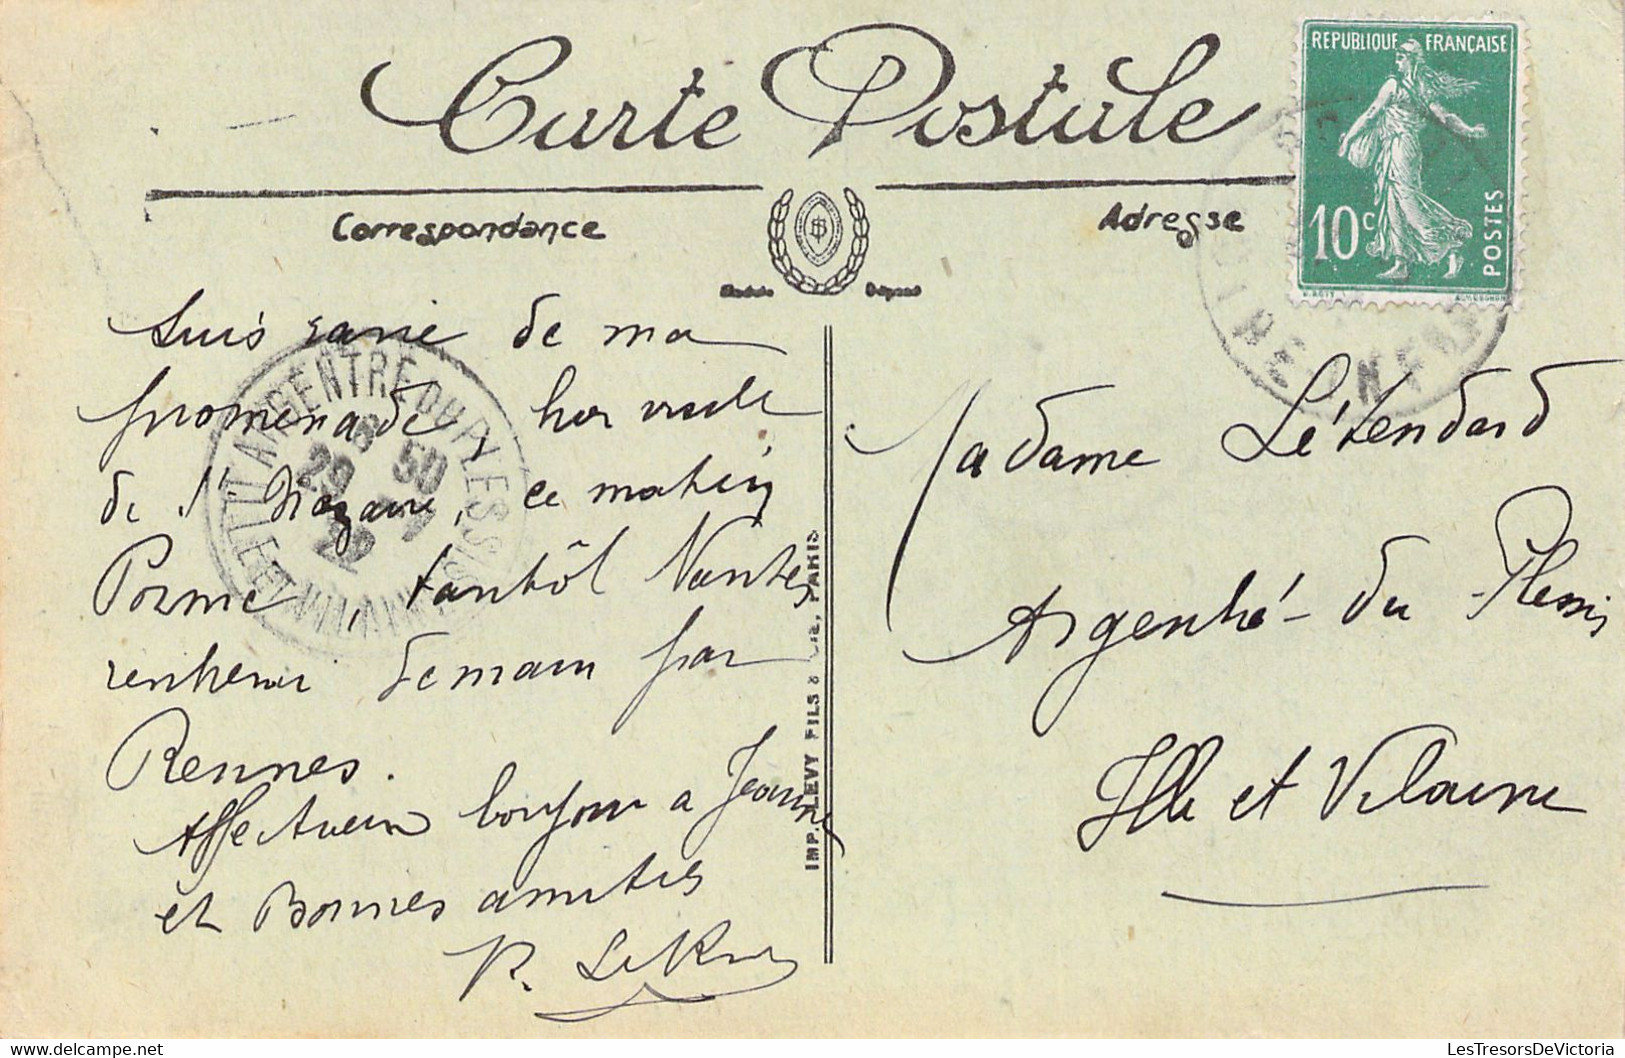 Carte Postale
Correspondance
Adresse
REPUBLIQUE FRANÇAISE
10c
POSTES
suis ravie de ma
promenade, hier visite
de St Nazaire, ce matin
Pornic, tantôt Nantes
rentrerai demain par
Rennes.
Affectueux bonjour a Jeanne
et Bonnes amitiés
Madame Létendard
Argentré-du Plessis
Ille et Vilaine
ARGENTRE DU PLESSIS
ILLE-ET-VILAINE
50
29
22
IMP. LEVY FILS & Cie, PARIS
LesTresorsDeVictoria